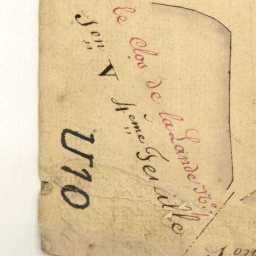 le Clos de la Lande
Sen V
4eme Feuille
U10
on